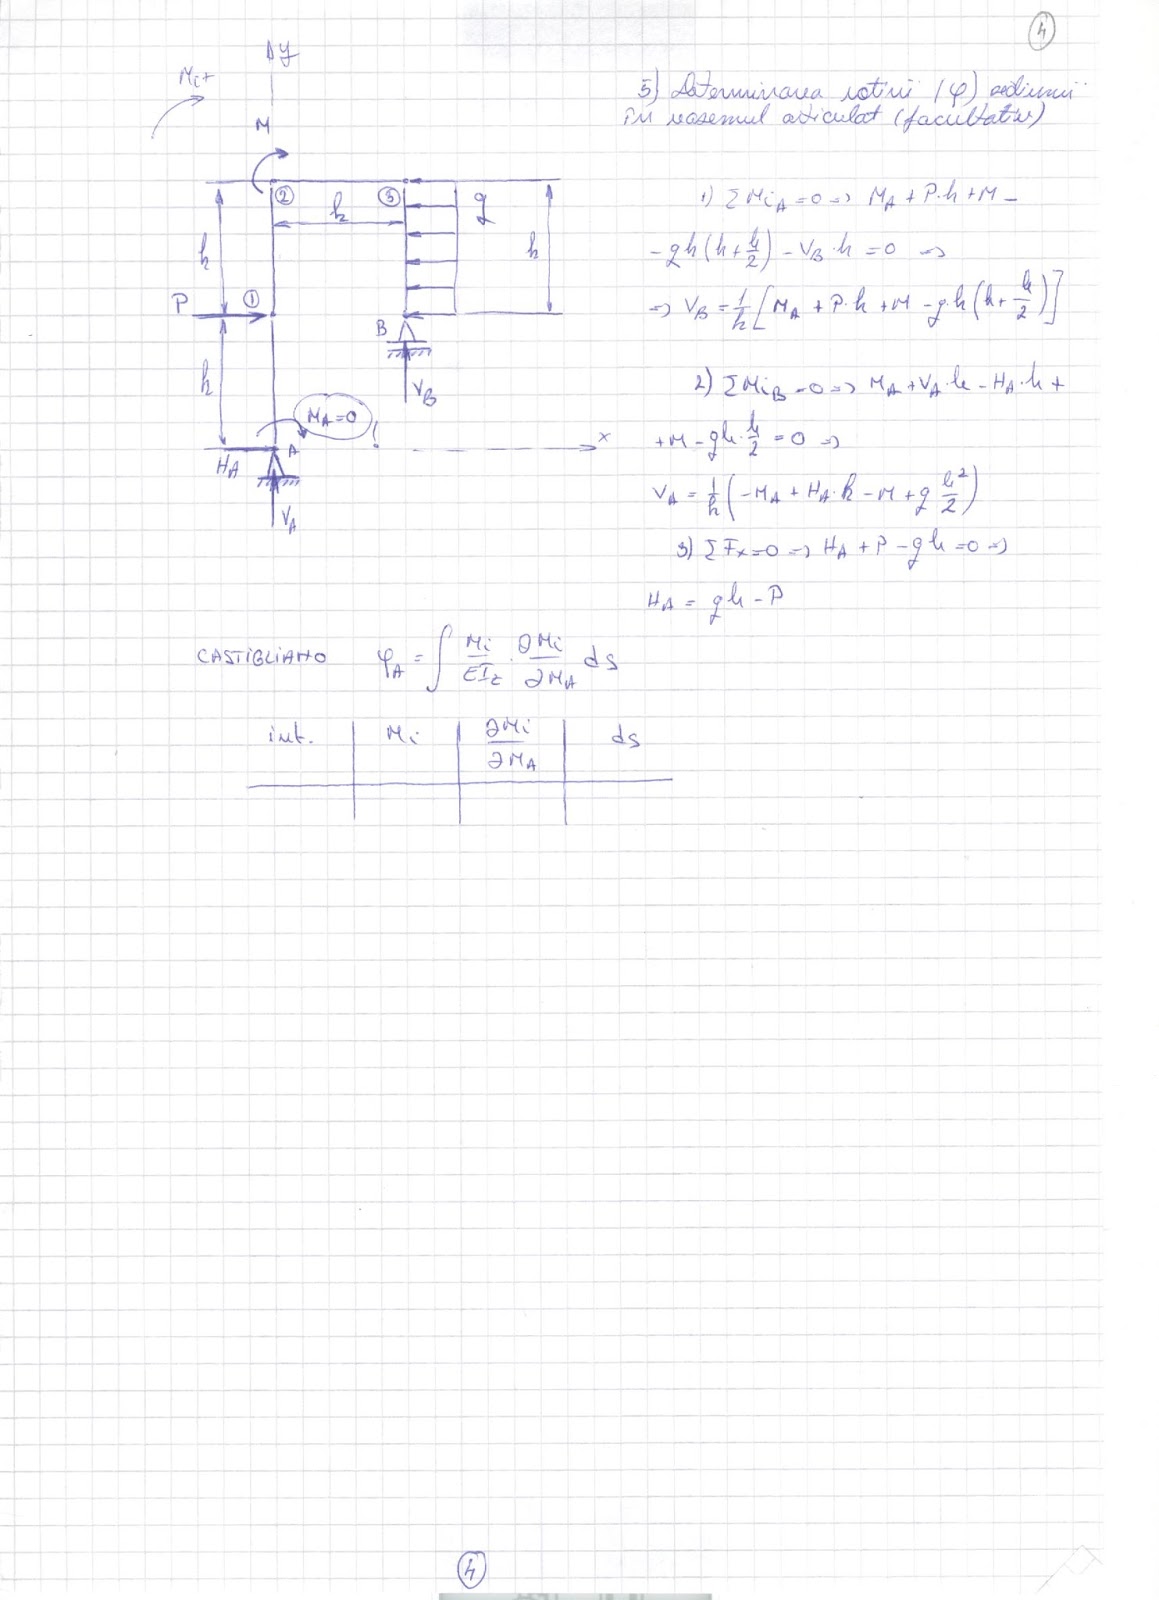 4
Δy
Mi+
M
5) Determinarea rotirii (φ) secțiunii
în reazemul articulat (facultativ)
② ③ q
h
h h
P ①
B
V_B
h
M_A=0 !
H_A A x
V_A
1) ΣMi_A=0 => M_A + P·h + M -
- qh(h+h/2) - V_B·h = 0 =>
=> V_B = 1/h [M_A + P·h + M - q·h(h+h/2)]
2) ΣMi_B=0 => M_A + V_A·h - H_A·h +
+ M - qh·h/2 = 0 =>
V_A = 1/h (-M_A + H_A·h - M + q h²/2)
3) ΣFx=0 => H_A + P - qh = 0 =>
H_A = qh - P
CASTIGLIANO φ_A = ∫ Mi/EIz · ∂Mi/∂M_A ds
int. Mi ∂Mi/∂M_A ds
4